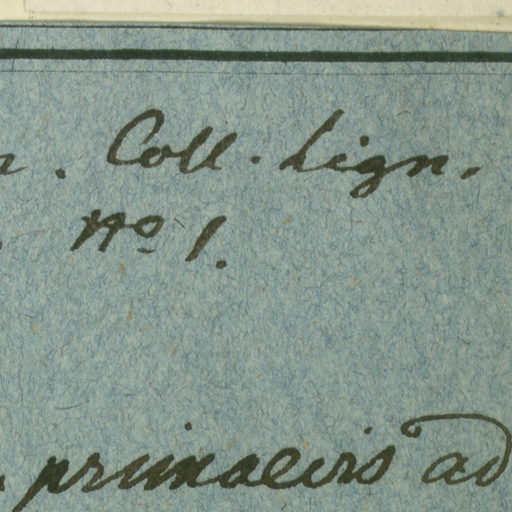 . Coll. Lign.
No 1.
primaevis ad